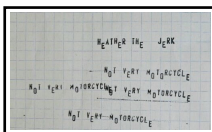 HEATHER THE JERK
NOT VERY MOTORCYCLE
NOT VERY MOTORCYCLE
NOT VERY MOTORCYCLE
NOT VERY MOTORCYCLE